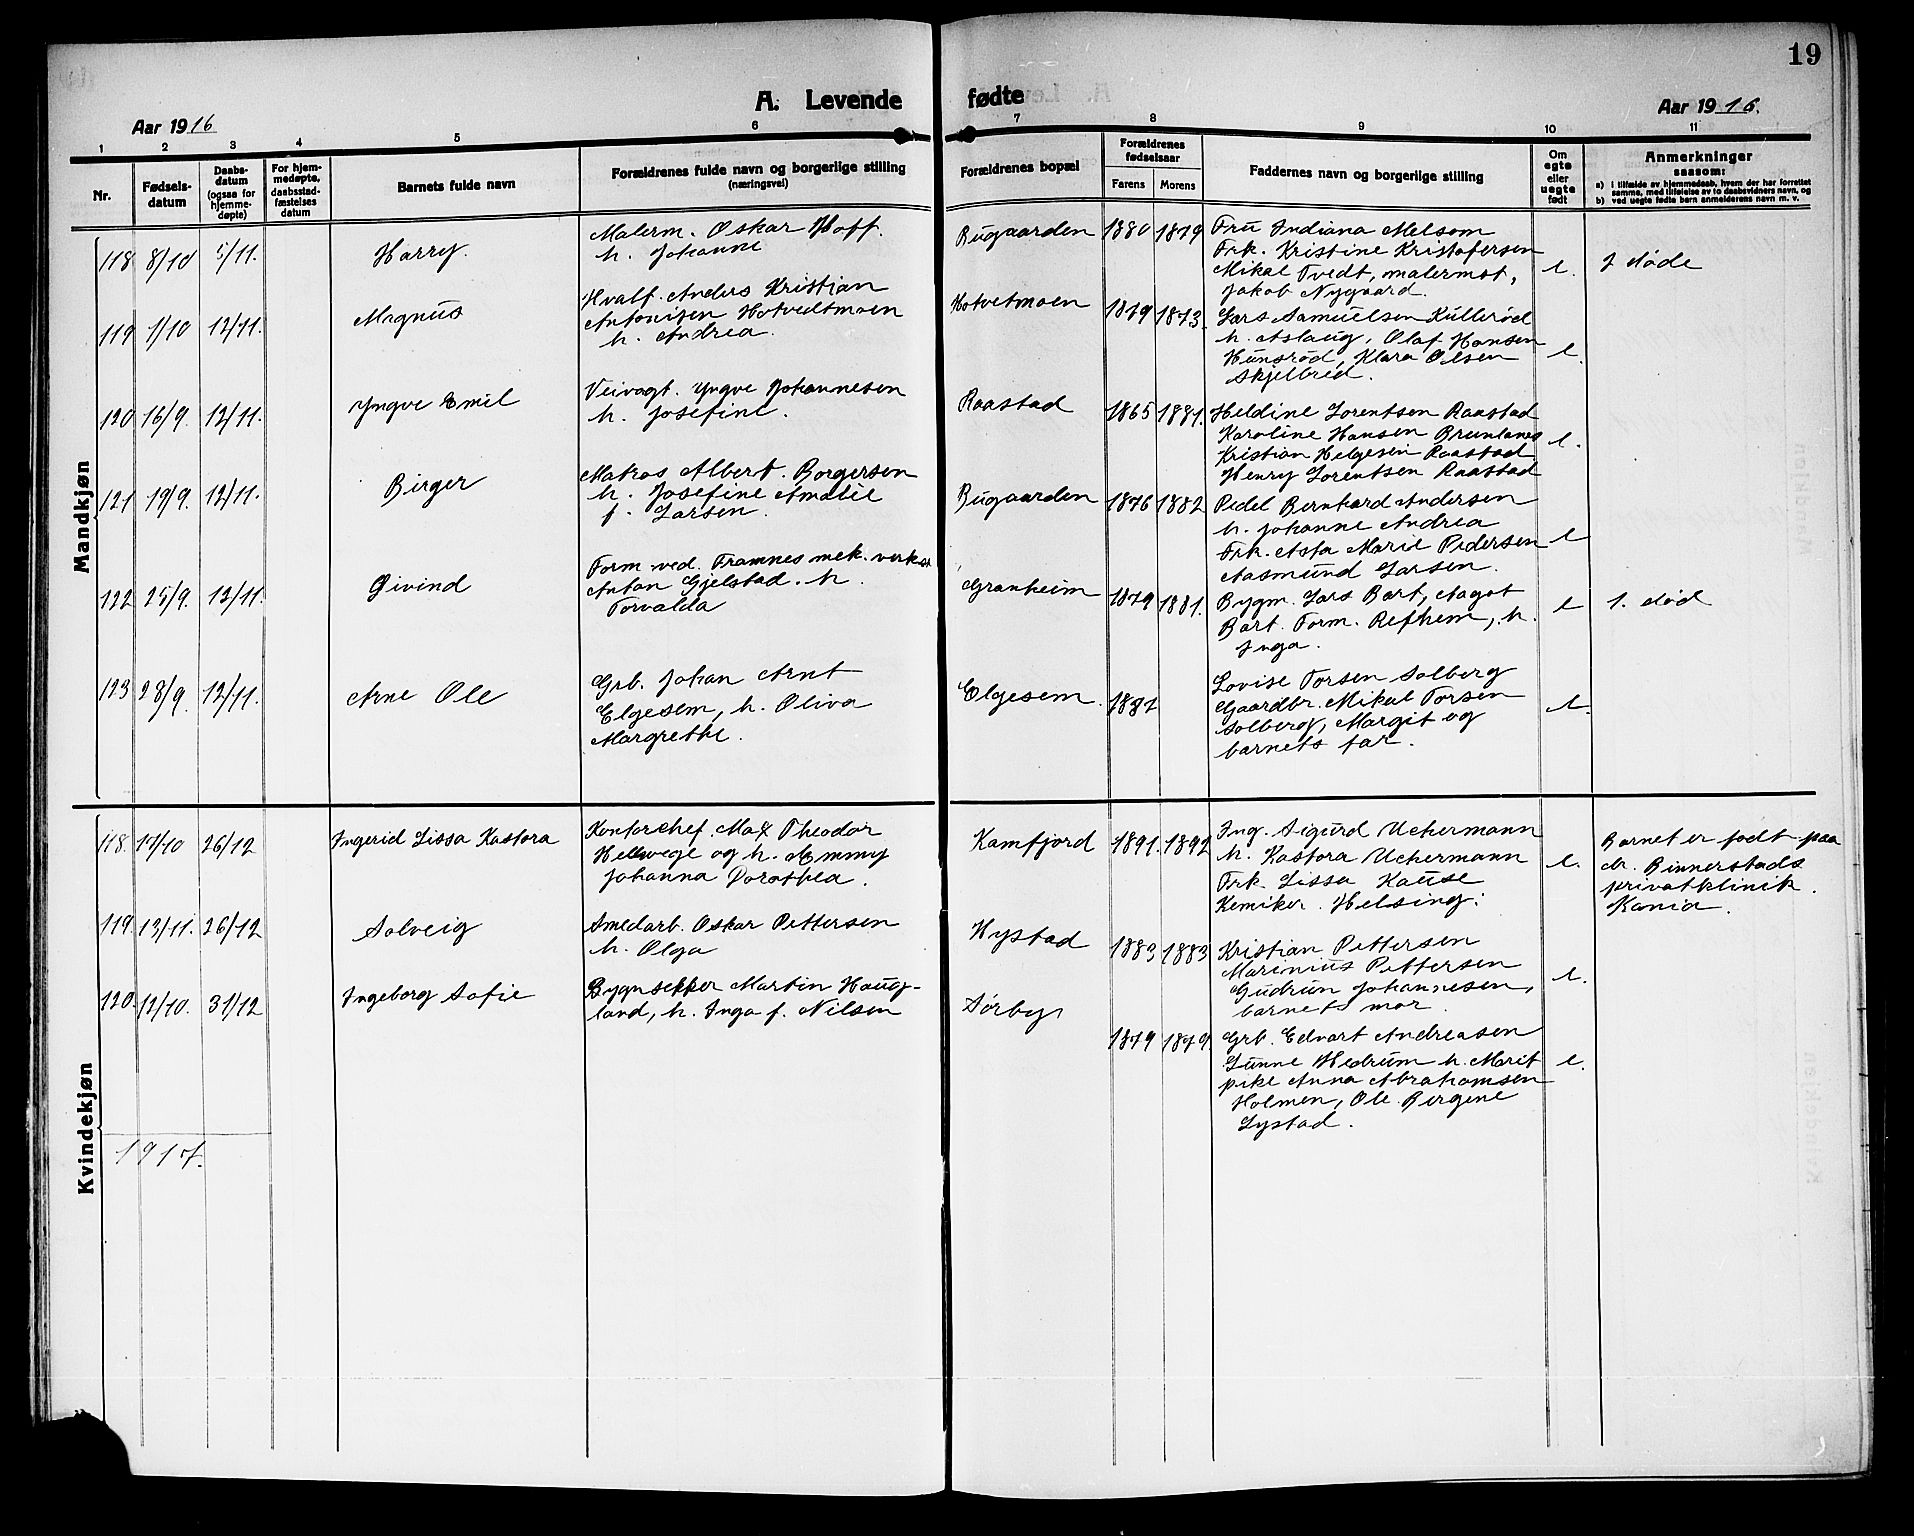 19
A. Levende fødte
Aar 1916
Aar 1916.
1 2 3 4 5 6 7 8 9 10 11
Nr.
Fødsels-
datum
Daabs-
datum
(ogsaa for
hjemme-
døpte)
For hjem-
medøpte,
daabsstad-
fæstelses
datum
Barnets fulde navn
Forældrenes fulde navn og borgerlige stilling
(næringsvei)
Forældrenes bopæl
Forældrenes
fødselsaar
Farens Morens
Faddernes navn og borgerlige stilling
Om
egte
eller
uegte
født
Anmerkninger
saasom:
a) i tilfælde av hjemmedaab, hvem der har forrettet
samme, med tilføielse av to daabsvidners navn, og
b) ved uegte fødte barn anmelderens navn m. v.
Mandkjøn
118 8/10 5/11. Harry.
Malerm. Oskar Hoff.
h. Johanne
Bugaarden 1880 1879
Fru Indiana Melsom
Frk. Kristine Kristofersen
Mikal Tvedt, malermst,
Jakob Nygaard.
e. 2 døde
119 1/10 12/11. Magnus
Hvalf. Anders Kristian
Antonisen Hotvedtmoen
h. Andrea.
Hotvetmoen 1879 1873.
Lars Samuelsen Kullerød
h. Aslaug, Olaf Hansen
Hunsrød, Klara Olsen
Skjelbred.
e.
120 16/9. 12/11. Yngve Emil
Veivogt. Yngve Johannesen
h. Josefine.
Raastad 1865 1881.
Heldine Lorentsen Raastad
Karoline Hansen Brunlanes
Kristian Helgesen Raastad
Henry Lorentsen Raastad
e.
121 19/9. 12/11. Birger
Matros Albert. Borgersen
h. Josefine Amalie
f. Larsen.
Bugaarden 1876 1882
Pedel Bernhard Andersen
h. Johanne Andrea
Frk. Asta Marie Pedersen
Aasmund Larsen.
e
122 25/9. 12/11. Øivind
Form. ved. Framnes mek. verkst
Anton Gjelstad. h.
Torvalda
Granheim 1879 1881.
Bygm. Lars Bart, Aagot
Bart. Form. Refhem, h.
Inga.
e 1. død
123 28/9. 12/11. Arne Ole
Grb. Johan Arnt
Elgesem, h. Oliva
Margrethe.
Elgesem. 1887
Lovise Torsen Solberg
Gaardbr. Mikal Torsen
Solberg, Margit og
barnets far.
e.
Kvindekjøn
118. 17/10 26/12 Ingerid Lissa Kastora
Kontorchef. Max Theodor
Hellwege og h. Emmy
Johanna Dorothea.
Kamfjord 1891. 1892
Ing. Sigurd Uchermann
h. Kastora Uchermann
Frk. Lissa Kause
Kemiker. Helsing.
e.
Barnet er født paa
dr. Binnerstads
privatklinik.
Kania.
119. 13/11. 26/12 Solveig
Smedarb. Oskar Pettersen
h. Olga
Hystad 1883 1883
Kristian Pettersen
Marinius Pettersen
Gudrun Johannesen,
barnets mor.
e.
120. 12/10. 31/12 Ingeborg Sofie
Bygnsekker Martin Haug-
land, h. Inga f. Nilsen
Sørby 1879 1879.
Grb. Edvart Andreasen
Lunne Hedrum h. Marit
pike Anna Abrahamsen
Holmen, Ole Bergene
Lystad.
e.
1917.